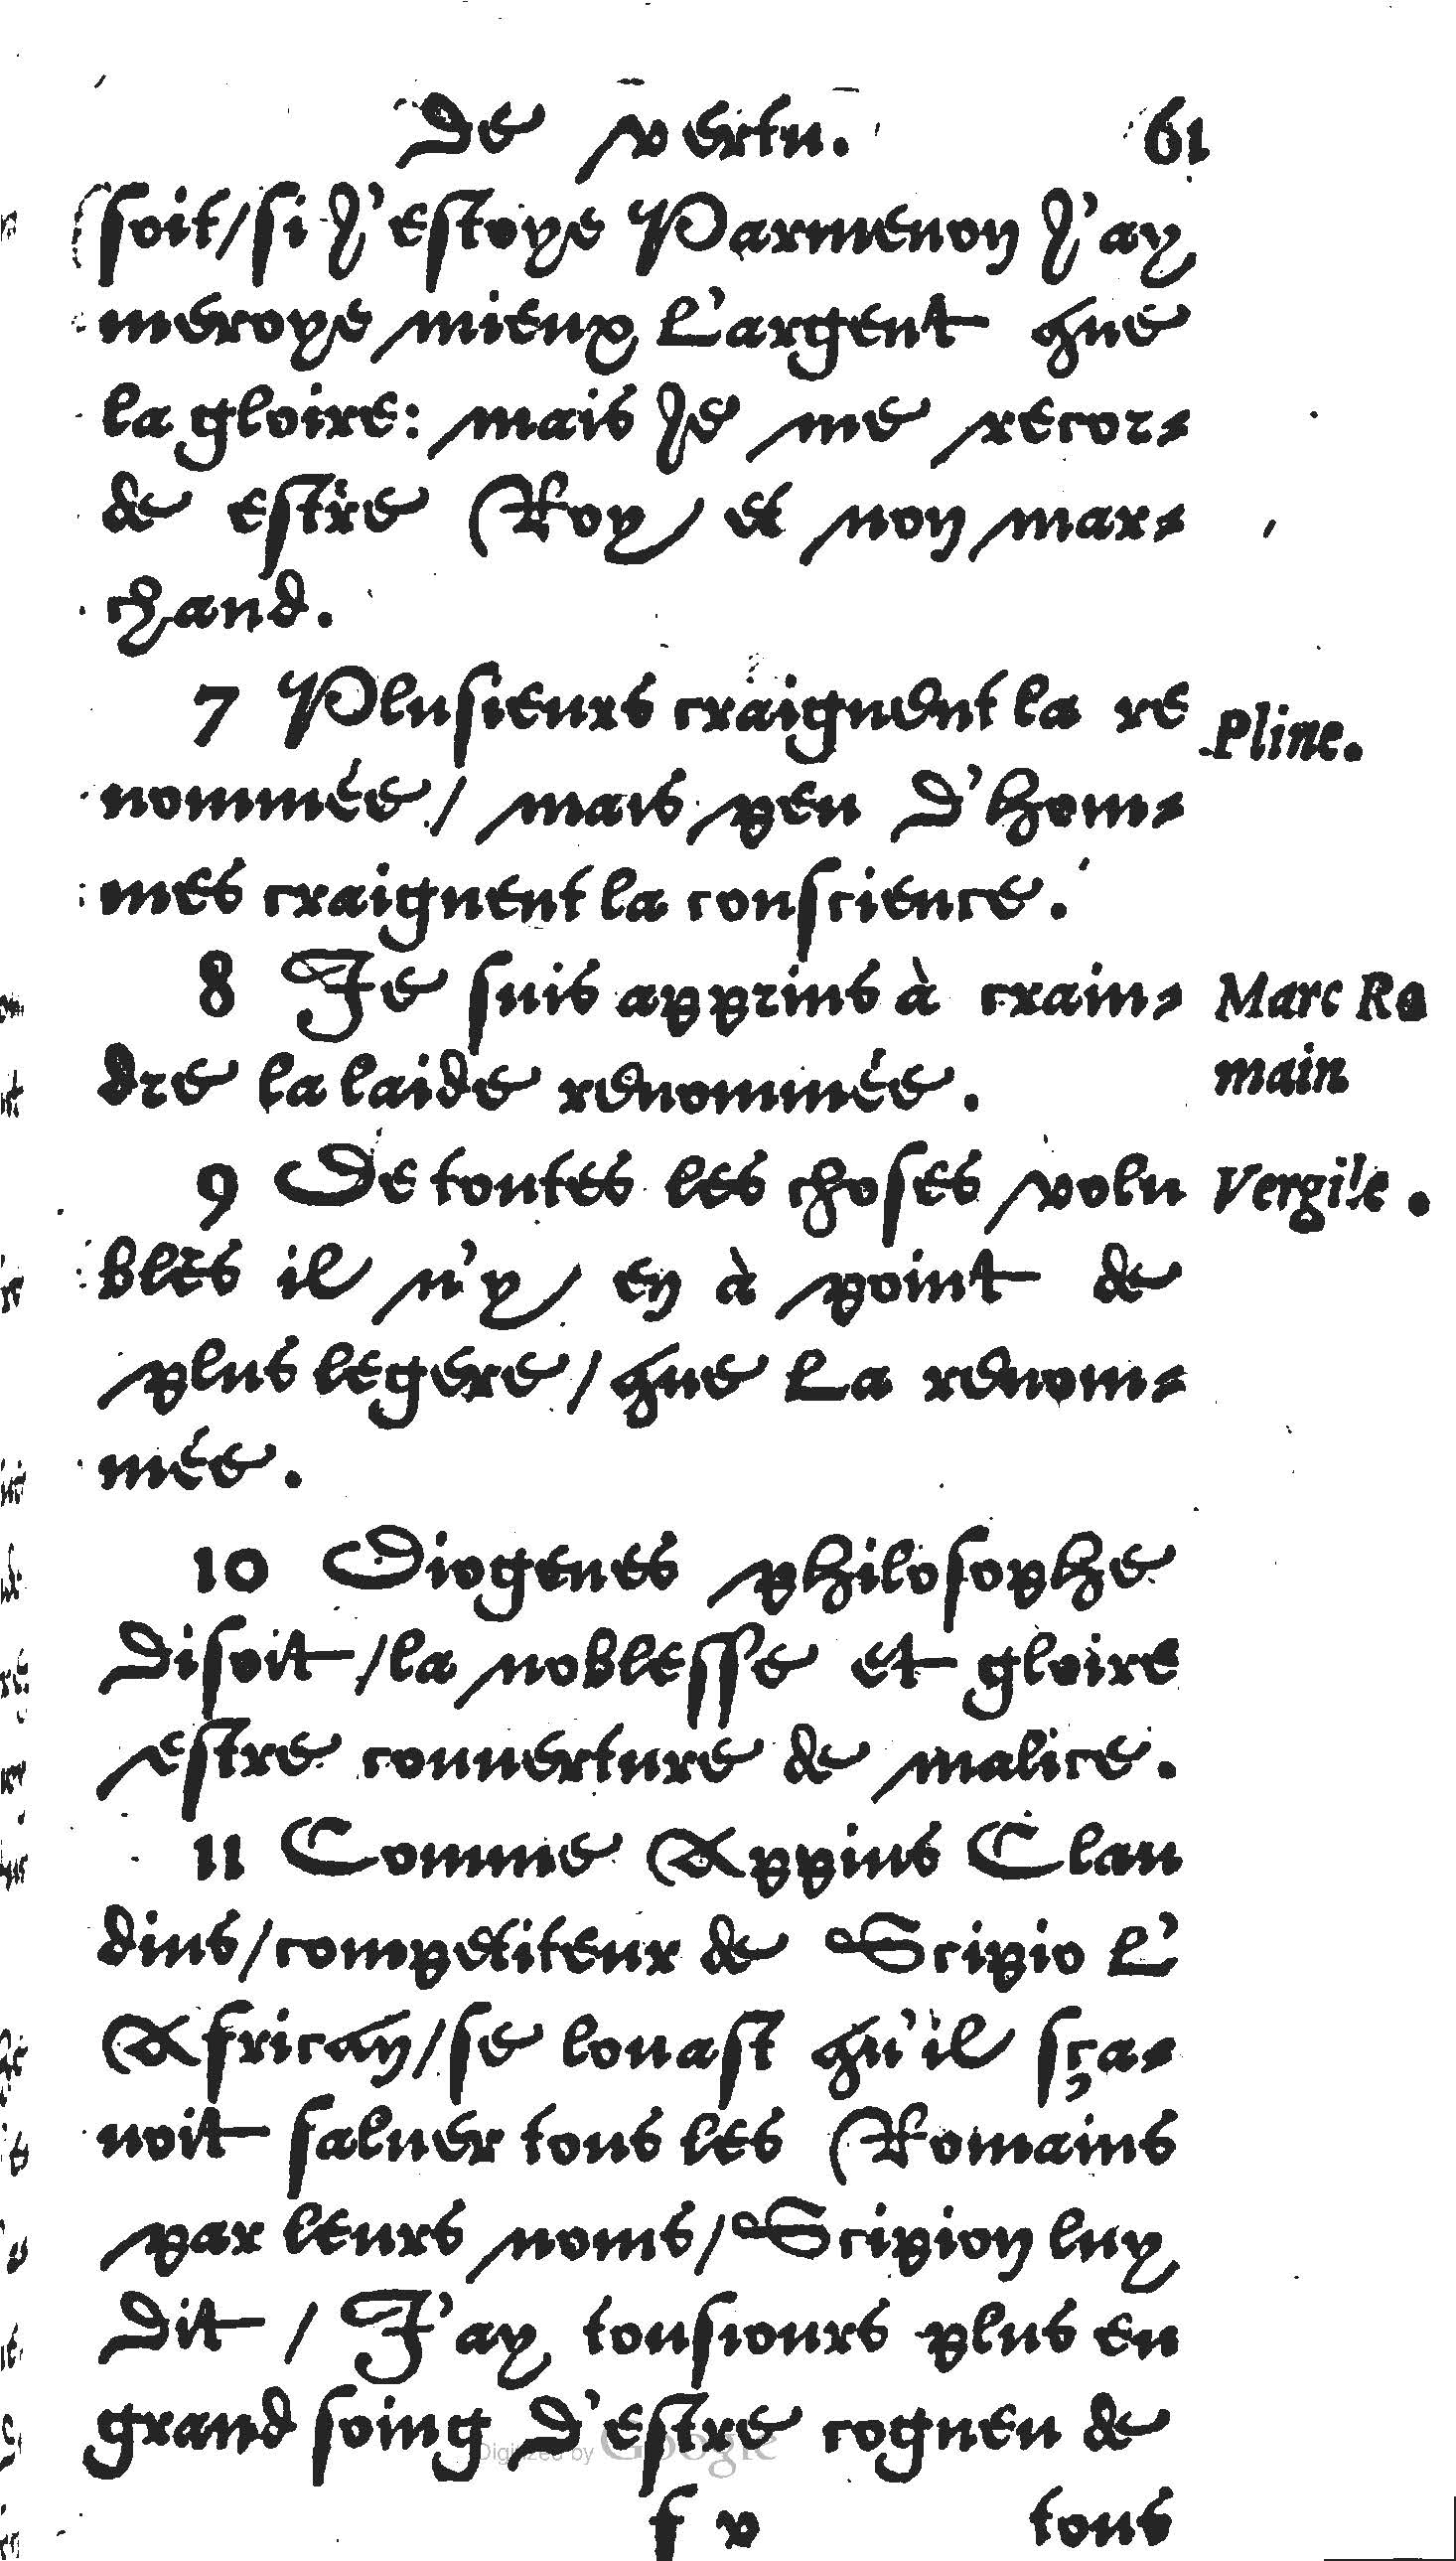 De vertu. 61
soit/si J'estoye Parmenon J'ay
meroye mieux L'argent que
la gloire: mais Je me recor-
de estre Roy et non mar-
chand.
7 Plusieurs craignent la re Pline.
nommée/ mais peu D'hom-
mes craignent la conscience.
8 Je suis apprins à crain- Marc Ro
dre la laide renommée. main
9 De toutes les choses volu Vergile.
bles il n'y en à point de
plus legere/ que La renom-
mée.
10 Diogenes philosophe
Disoit/la noblesse et gloire
estre couuerture de malice.
11 Comme Appius Clau
dius/competiteur de Scipio L'
African/se louast qu'il sça-
uoit saluer tous les Romains
par leurs noms/Scipion luy
Dit / J'ay tousiours plus eu
grand soing D'estre cogneu de
f v tous
Digitized by Google